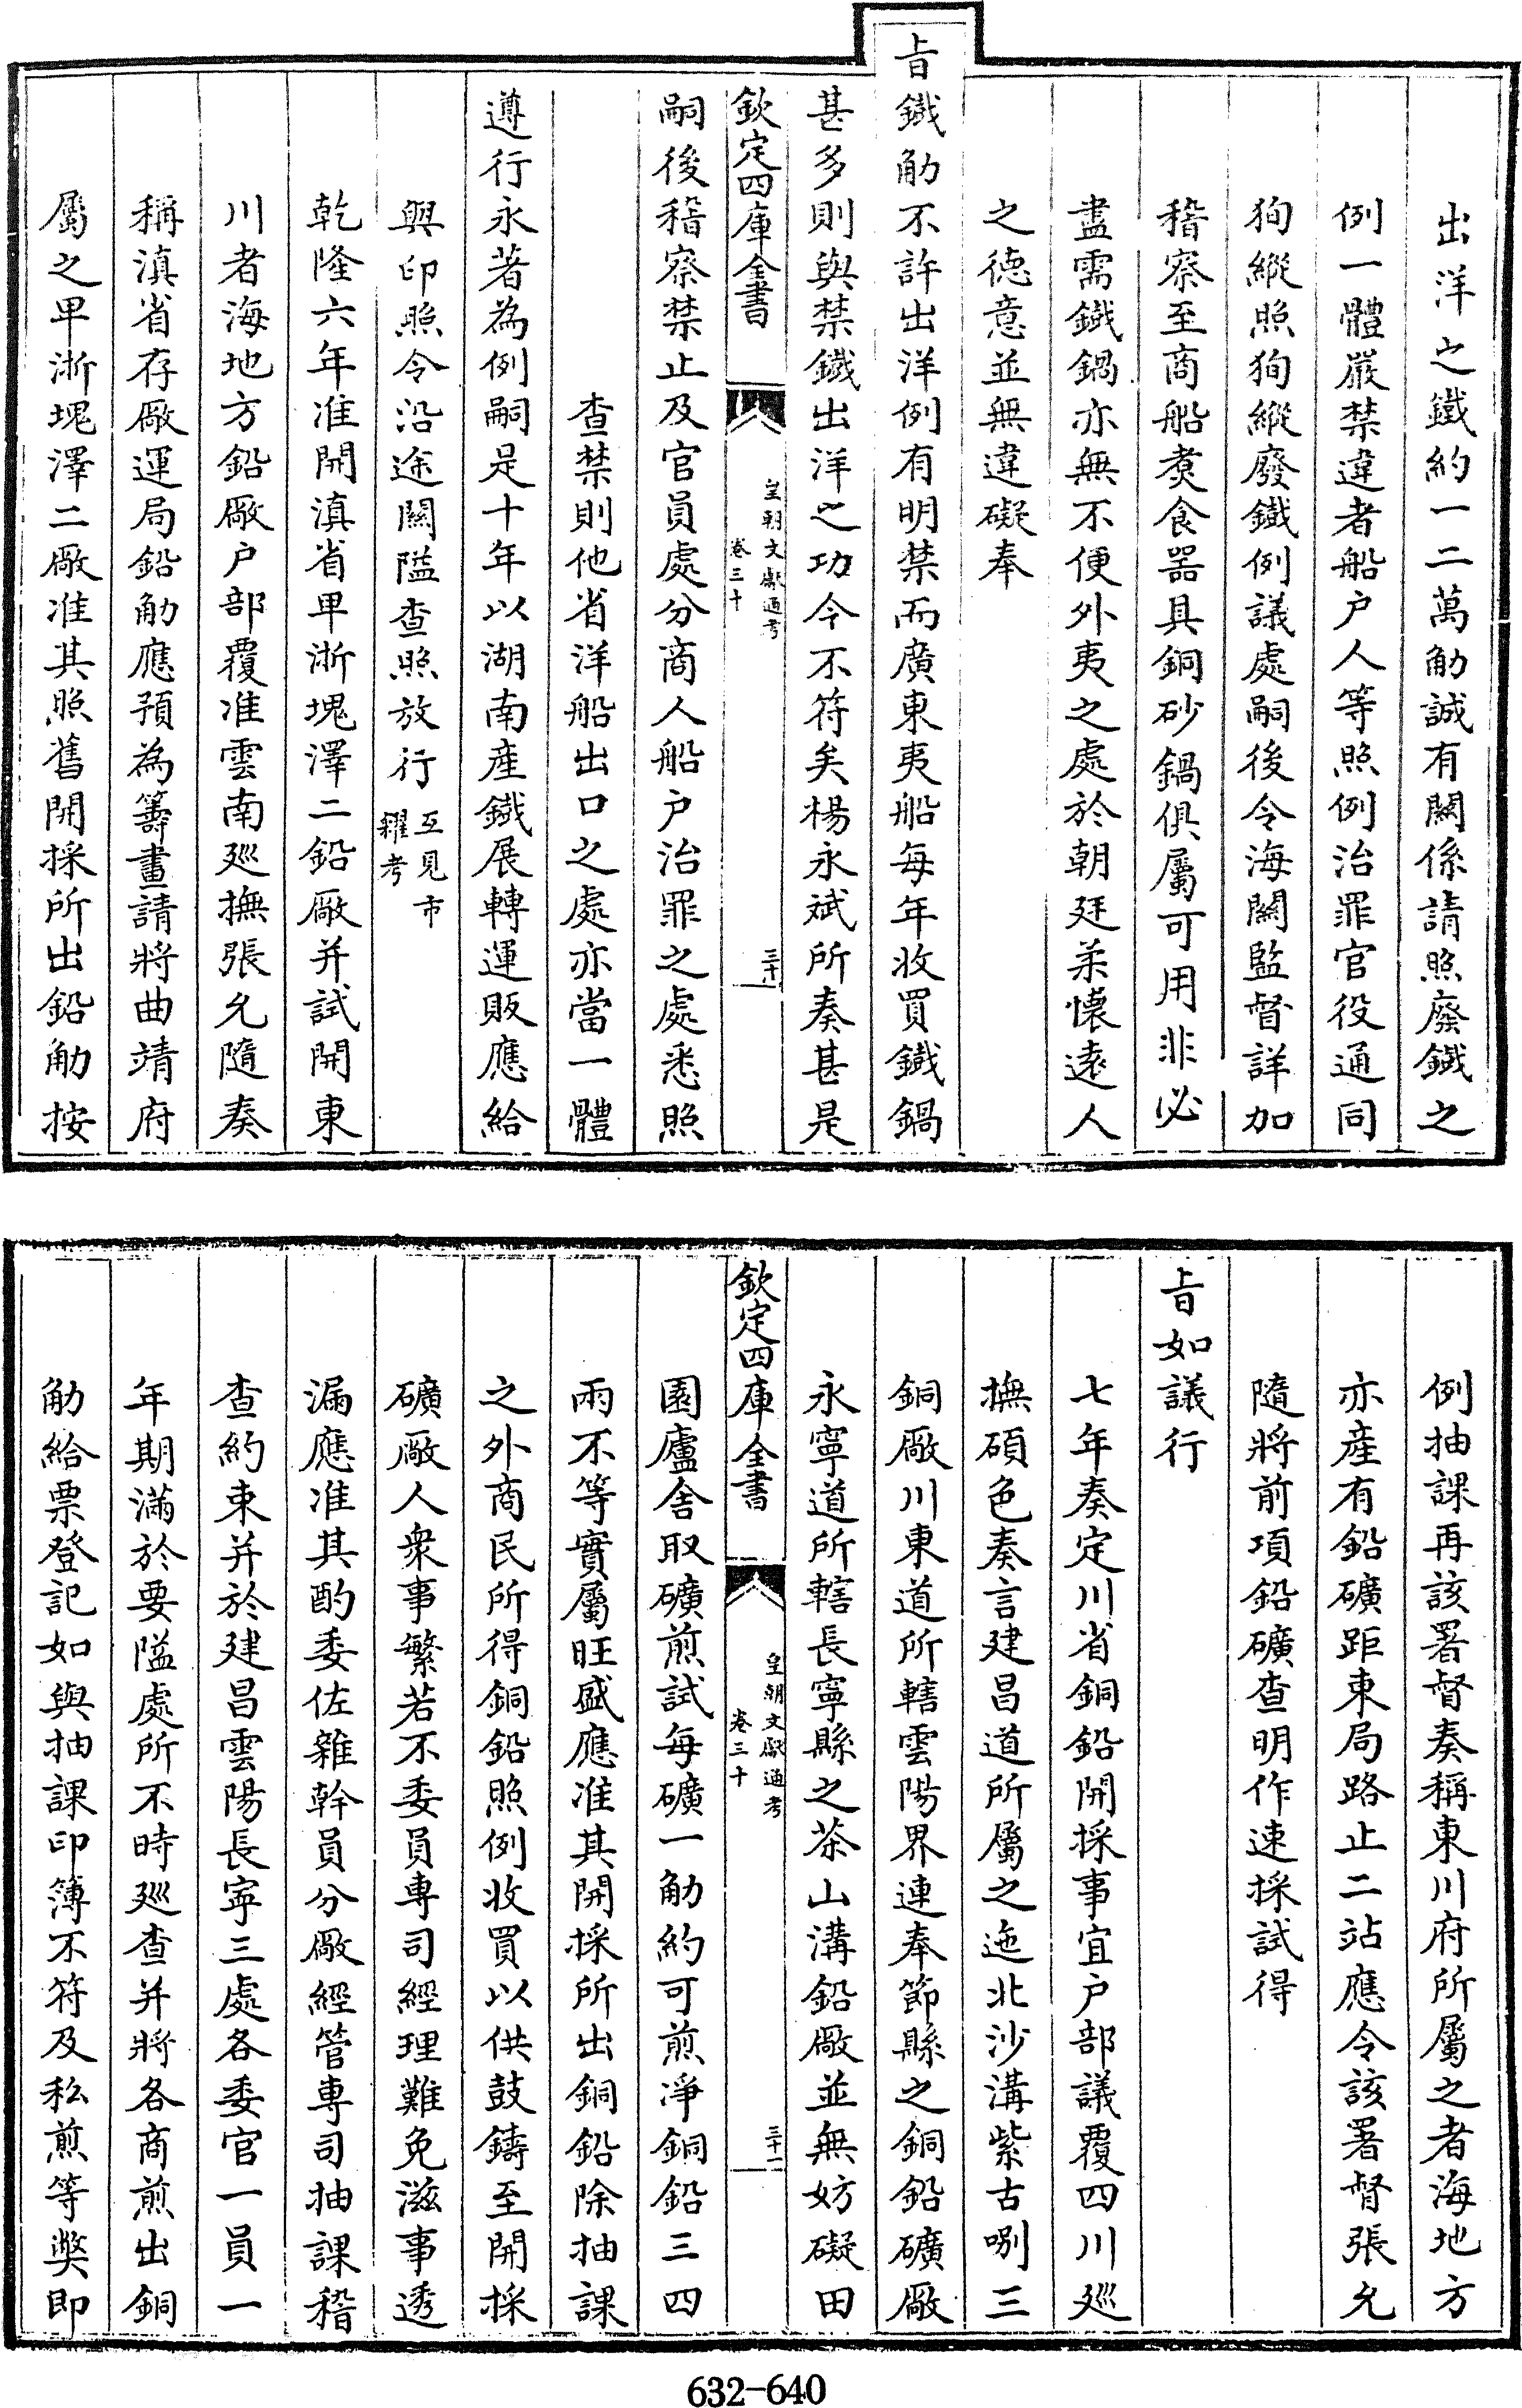 出洋之鐵約一二萬觔誠有關係請照廢鐵之
例一體嚴禁違者船户人等照例治罪官役通同
狥縱照狥縱廢鐵例議處嗣後令海關監督詳加
稽察至商船煑食器具銅砂鍋俱屬可用非必
盡需鐵鍋亦無不便外夷之處於朝廷柔懷逺人
之徳意並無違礙奉
㫖鐵觔不許出洋例有明禁而廣東夷船每年收買鐵鍋
甚多則與禁鐵出洋之功令不符矣楊永斌所奏甚是
欽定四庫全書
皇朝文獻通考
卷三十
三十
嗣後稽察禁止及官員處分商人船户治罪之處悉照
查禁則他省洋船出口之處亦當一體
遵行永著為例嗣是十年以湖南産鐵展轉運販應給
與印照令沿途關隘查照放行互見市
糴考
乾隆六年准開滇省甲淅塊澤二鉛廠并試開東
川者海地方鉛廠户部覆准雲南廵撫張允隨奏
稱滇省存廠運局鉛觔應預為籌畫請將曲靖府
屬之甲淅塊澤二廠准其照舊開採所出鉛觔按
例抽課再該署督奏稱東川府所屬之者海地方
亦産有鉛礦距東局路止二站應令該署督張允
隨將前項鉛礦查明作速採試得
㫖如議行
七年奏定川省銅鉛開採事宜户部議覆四川廵
撫碩色奏言建昌道所屬之迤北沙溝紫古哵三
銅廠川東道所轄雲陽界連奉節縣之銅鉛礦廠
永寧道所轄長寧縣之茶山溝鉛廠並無妨礙田
欽定四庫全書
皇朝文獻通考
卷三十
三十一
園廬舍取礦煎試每礦一觔約可煎凈銅鉛三四
兩不等實屬旺盛應准其開採所出銅鉛除抽課
之外商民所得銅鉛照例收買以供鼓鑄至開採
礦廠人衆事繁若不委員專司經理難免滋事透
漏應准其酌委佐雜幹員分廠經管專司抽課稽
查約束并於建昌雲陽長寧三處各委官一員一
年期滿於要隘處所不時廵查并將各商煎出銅
觔給票登記如與抽課印簿不符及私煎等獘即
632-640